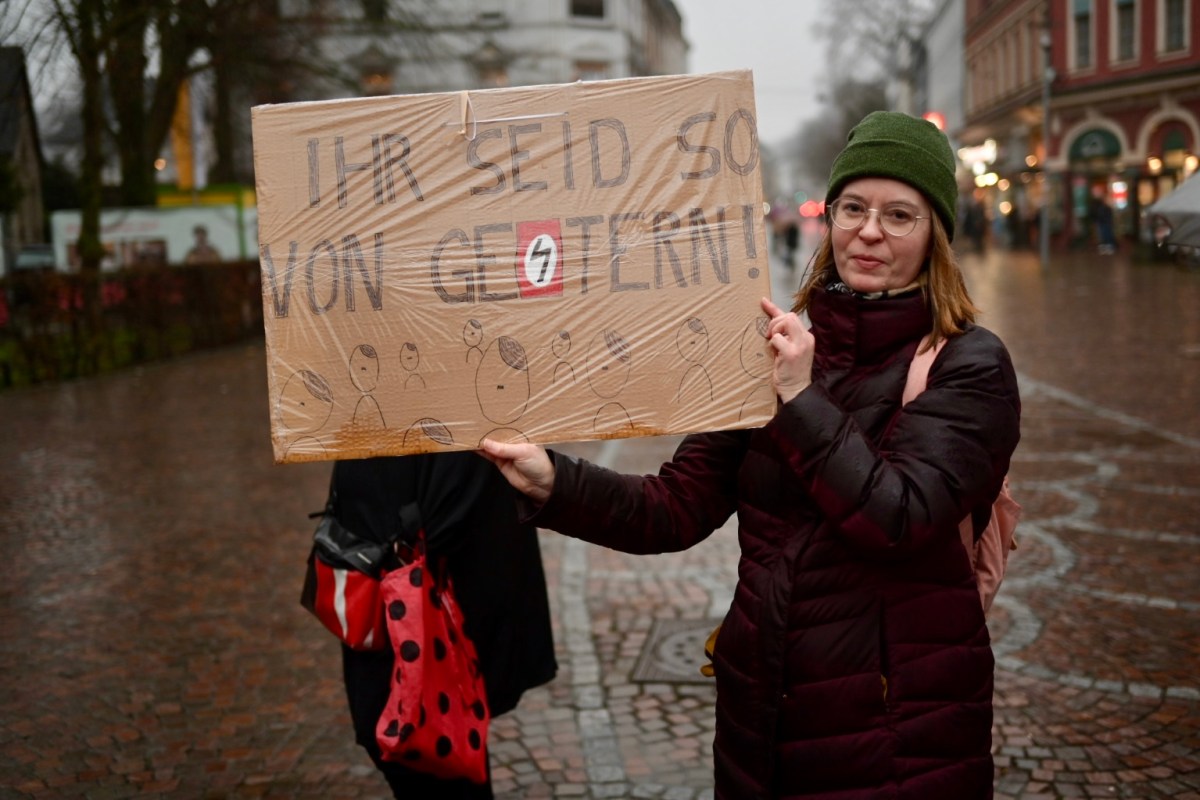 IHR SEID SO
VON GESTERN!